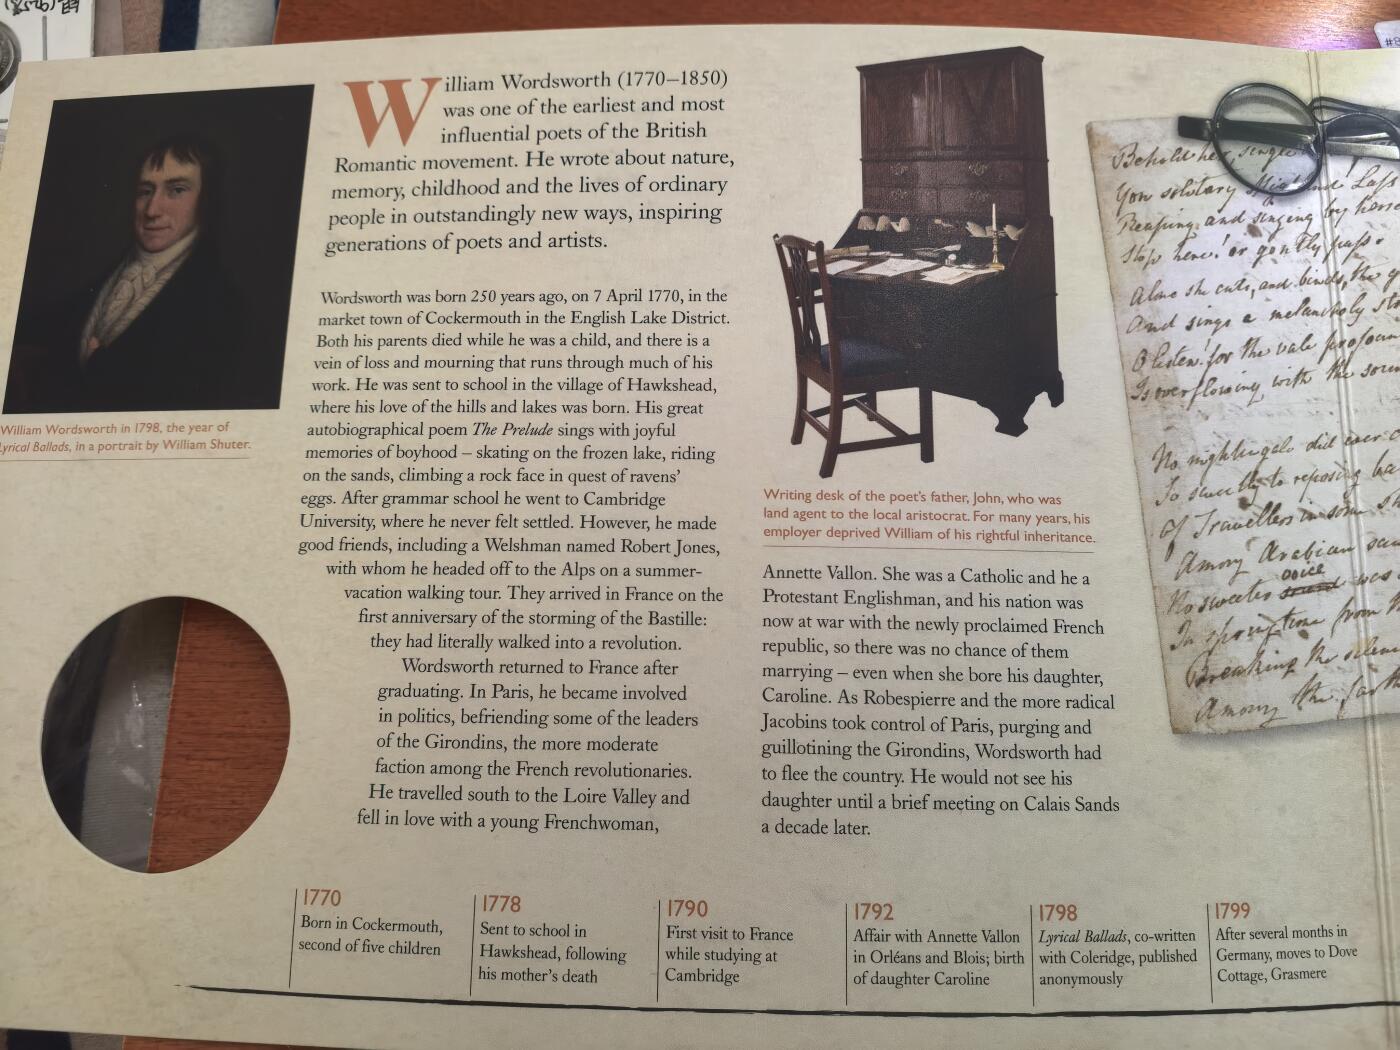 William Wordsworth (1770–1850)
was one of the earliest and most
influential poets of the British
Romantic movement. He wrote about nature,
memory, childhood and the lives of ordinary
people in outstandingly new ways, inspiring
generations of poets and artists.
Wordsworth was born 250 years ago, on 7 April 1770, in the
market town of Cockermouth in the English Lake District.
Both his parents died while he was a child, and there is a
vein of loss and mourning that runs through much of his
work. He was sent to school in the village of Hawkshead,
where his love of the hills and lakes was born. His great
autobiographical poem The Prelude sings with joyful
memories of boyhood – skating on the frozen lake, riding
on the sands, climbing a rock face in quest of ravens’
eggs. After grammar school he went to Cambridge
University, where he never felt settled. However, he made
good friends, including a Welshman named Robert Jones,
with whom he headed off to the Alps on a summer-
vacation walking tour. They arrived in France on the
first anniversary of the storming of the Bastille:
they had literally walked into a revolution.
Wordsworth returned to France after
graduating. In Paris, he became involved
in politics, befriending some of the leaders
of the Girondins, the more moderate
faction among the French revolutionaries.
He travelled south to the Loire Valley and
fell in love with a young Frenchwoman,
William Wordsworth in 1798, the year of
Lyrical Ballads, in a portrait by William Shuter.
Writing desk of the poet’s father, John, who was
land agent to the local aristocrat. For many years, his
employer deprived William of his rightful inheritance.
Annette Vallon. She was a Catholic and he a
Protestant Englishman, and his nation was
now at war with the newly proclaimed French
republic, so there was no chance of them
marrying – even when she bore his daughter,
Caroline. As Robespierre and the more radical
Jacobins took control of Paris, purging and
guillotining the Girondins, Wordsworth had
to flee the country. He would not see his
daughter until a brief meeting on Calais Sands
a decade later.
Behold her, single
You solitary Highland Lass
Reaping and singing by herse
Stop here! or gently pass.
Alone she cuts, and binds, the g
And sings a melancholy str
O listen! for the vale profoun
Is overflowing with the soun
No nightingale did ever
So sweetly to reposing ba
Of Travellers in some sh
Among Arabian san
voice
No sweeter sound was
In spring time from th
Breaking the silen
Among the farth
1770
Born in Cockermouth,
second of five children
1778
Sent to school in
Hawkshead, following
his mother’s death
1790
First visit to France
while studying at
Cambridge
1792
Affair with Annette Vallon
in Orléans and Blois; birth
of daughter Caroline
1798
Lyrical Ballads, co-written
with Coleridge, published
anonymously
1799
After several months in
Germany, moves to Dove
Cottage, Grasmere